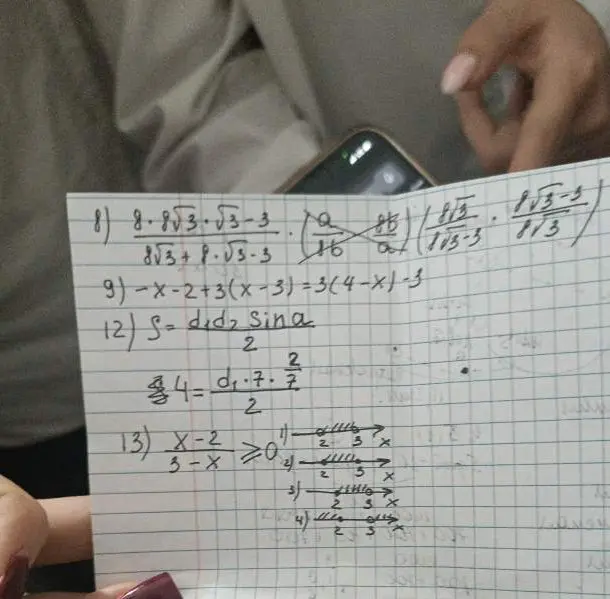 8) (8·8√3·√3-3)/(8√3+8·√3-3) · (a/8b 8b/a) (8√3/8√3-3 · 8√3-3/8√3)
9) -x-2+3(x-3)=3(4-x)-3
12) S = d₁d₂ sin a/2
4 = d₁·7·2/7/2
13) x-2/3-x ≥ 0
1) 2 3 x
2) 2 3 x
3) 2 3 x
4) 2 3 x